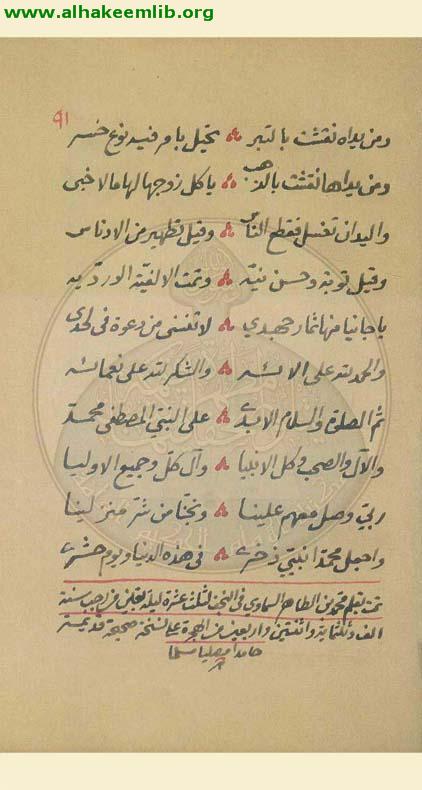 www.alhakeemlib.org
٩١
ومن يداه نقشت بالتبر يحتل بامر فيه نوع خسر
ومن يداها نقشت بالذهب ياكل زوجها لها مالا حبي
واليدان تغسل فقطع الناس وقيل تطهير من الادناس
وقيل توبة وحسن نيه وتمت الالفية الورديه
يا جانيا منها ثمار جهدي لا تنسني من دعوة في لحدي
والحمد لله على الائه والشكر لله على نعمائه
ثم الصلوة والسلام الابدي على النبي المصطفى محمد
والآل والصحب وكل الانبيا وآل كل وجميع الاوليا
ربي وصل معهم علينا ونجنا من شر منز لينا
واجعل محمدا نبيي ذخري في هذه الدنيا ويوم حشري
تمت بقلم محمد بن الطاهر السماوي في النجف لثلث عشرة ليلة بقين من رجب سنة
الف وثلثمائة واثنتين واربعين من الهجرة على نسخة صحيحة قديمة
حامدا مصليا مسلما